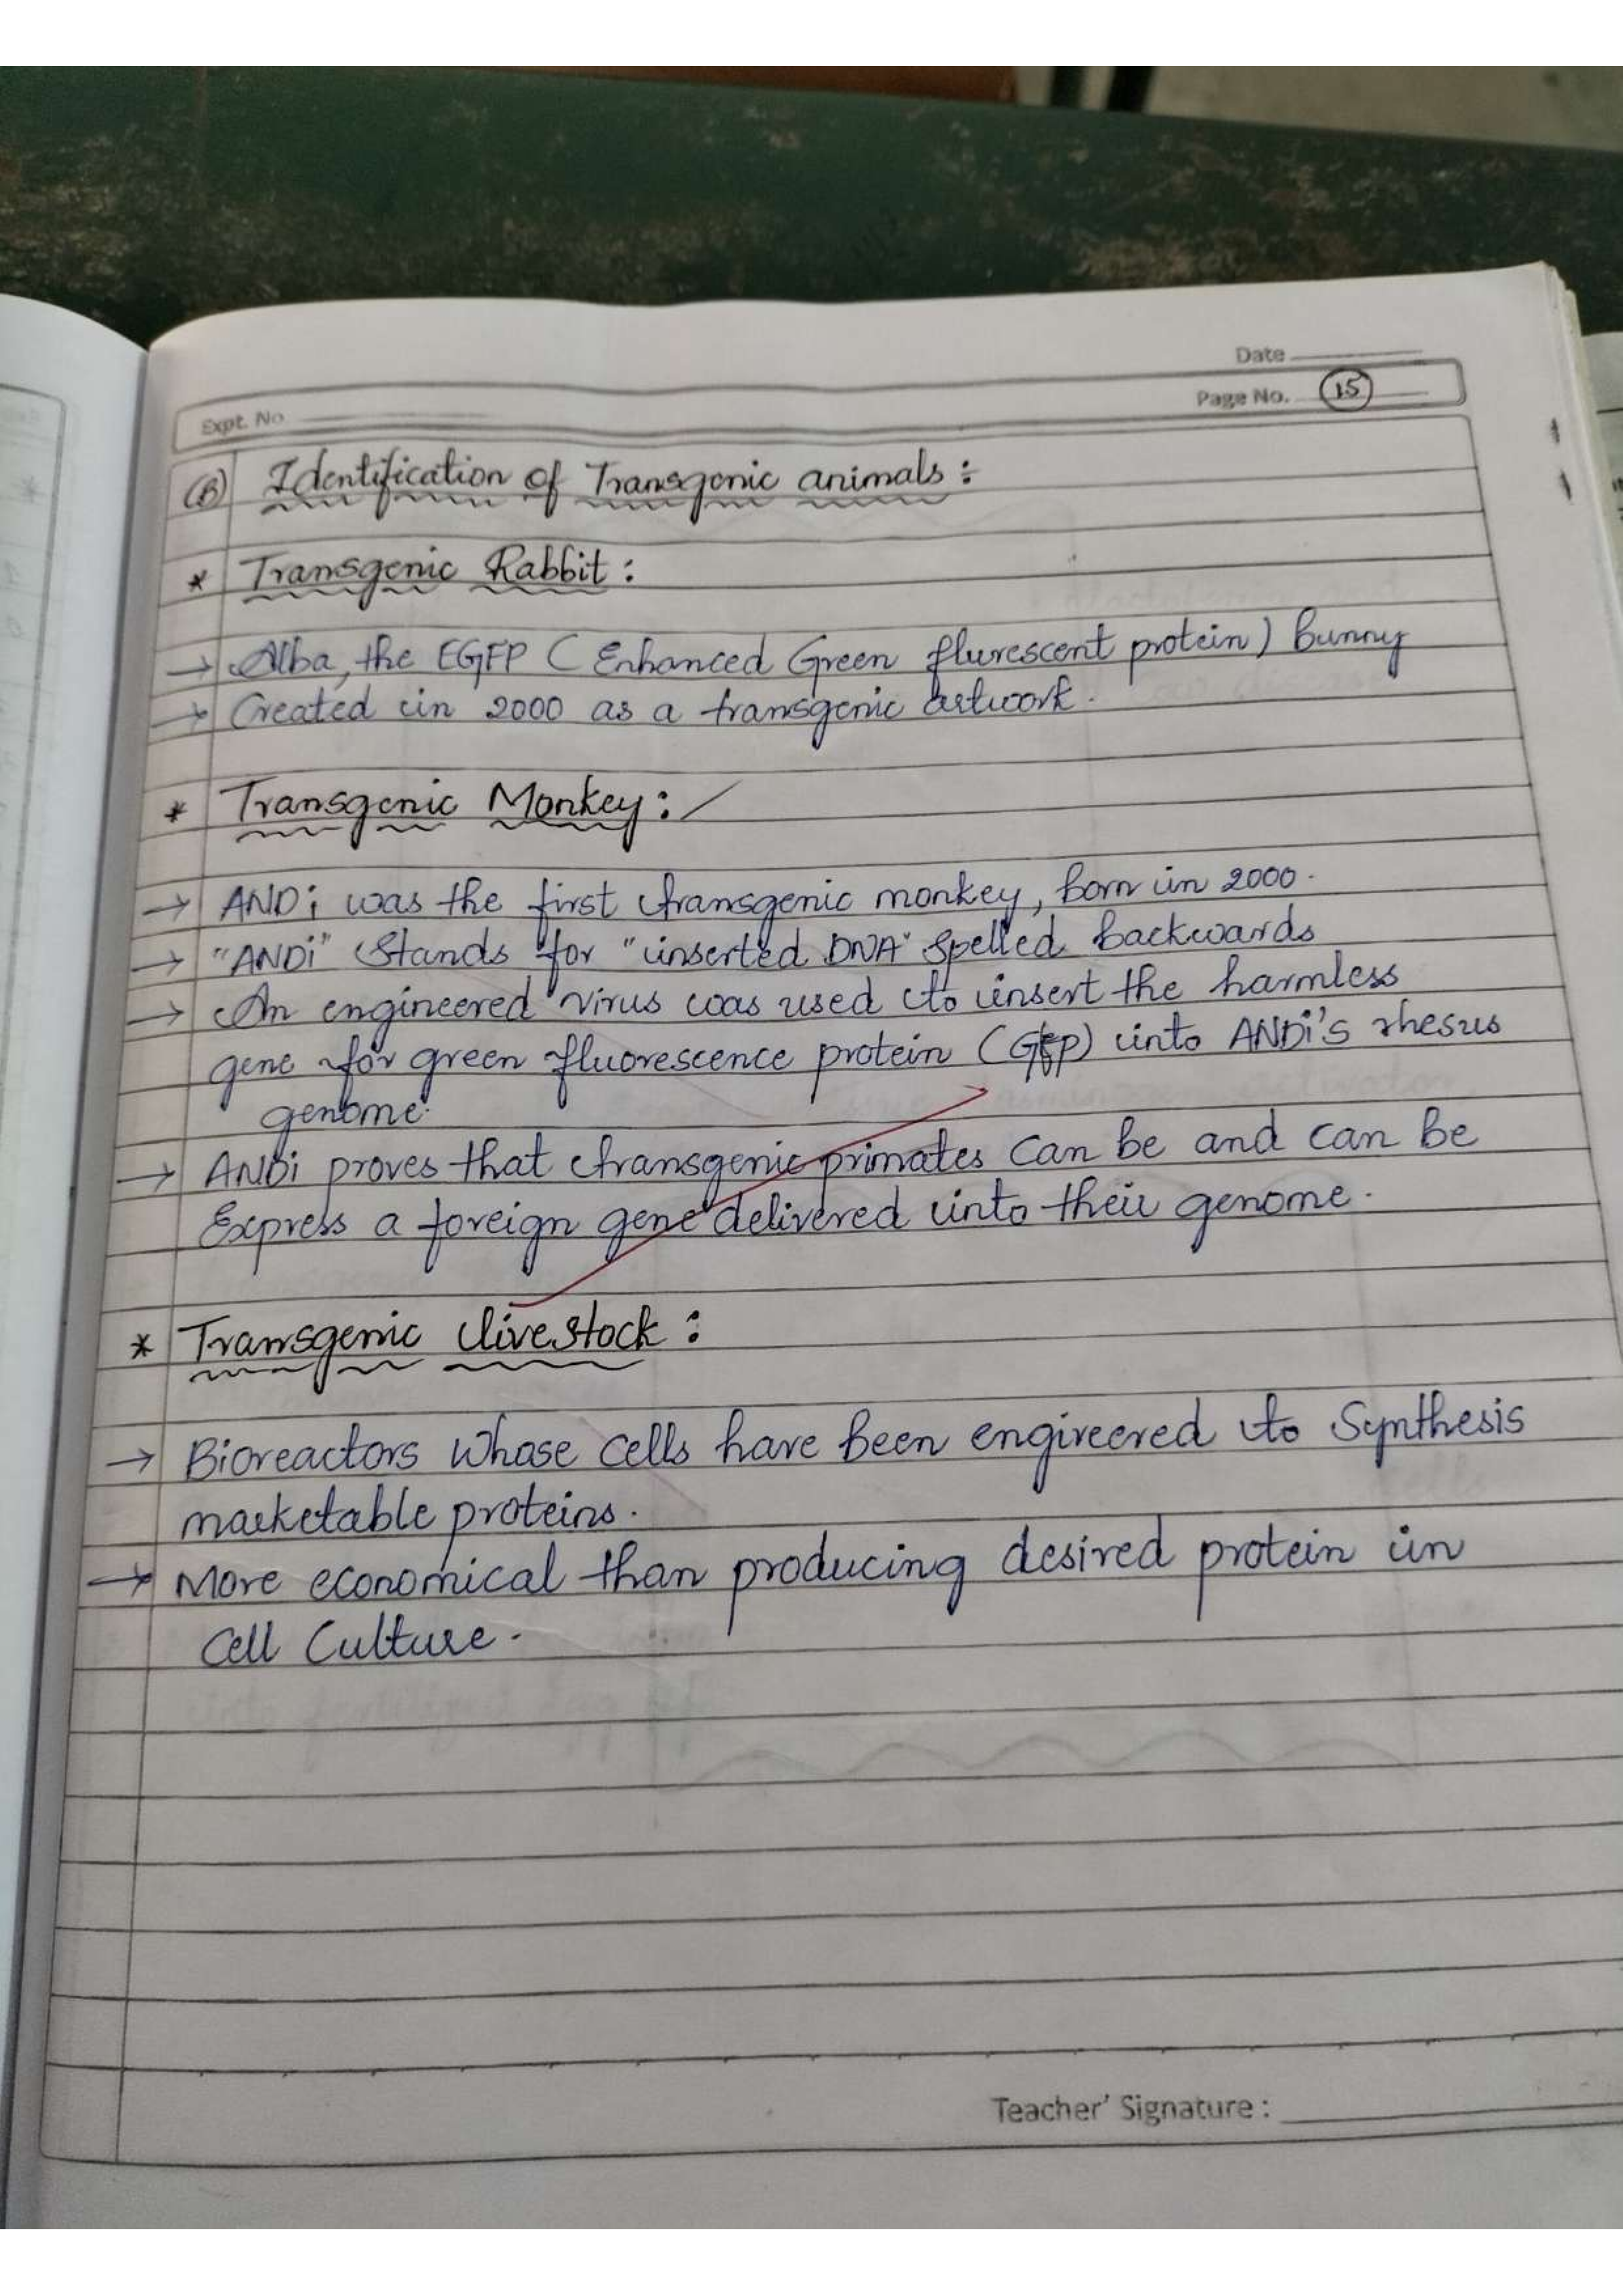 Date
Page No. 15
Expt. No
(B) Identification of Transgenic animals :
* Transgenic Rabbit :
→ Alba, the EGFP ( Enhanced Green flurescent protein) bunny
→ Created in 2000 as a transgenic artwork.
* Transgenic Monkey : /
→ ANDi was the first transgenic monkey, born in 2000.
→ "ANDi" Stands for "inserted DNA" Spelled backwards
→ An engineered virus was used to insert the harmless
gene for green fluorescence protein (GFP) into ANDi's rhesus
genome.
→ ANDi proves that transgenic primates Can be and can be
Express a foreign gene delivered into their genome.
* Transgenic livestock :
→ Bioreactors Whose Cells have been engireered to Synthesis
marketable proteins.
→ More economical than producing desired protein in
Cell Culture.
Teacher' Signature :